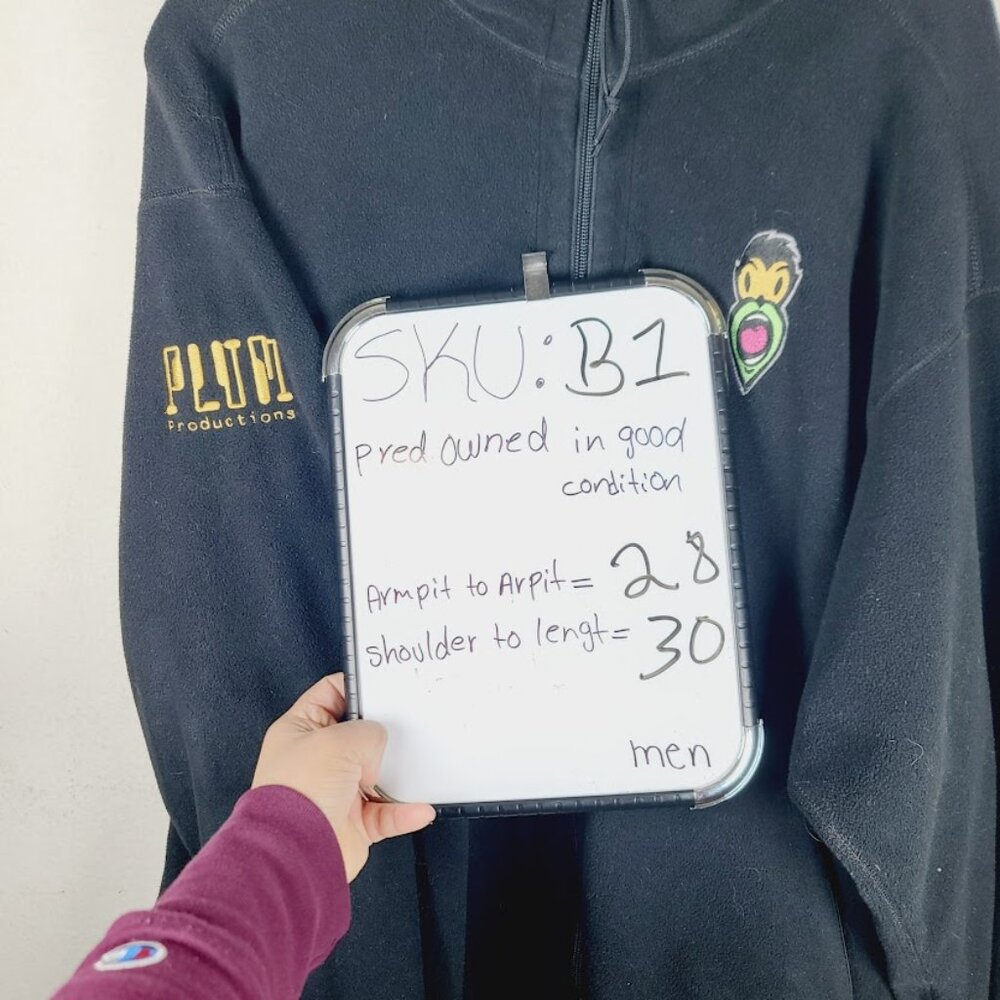 PLUM
Productions
SKU: B1
pred owned in good
condition
Armpit to Arpit = 28
shoulder to lengt = 30
men